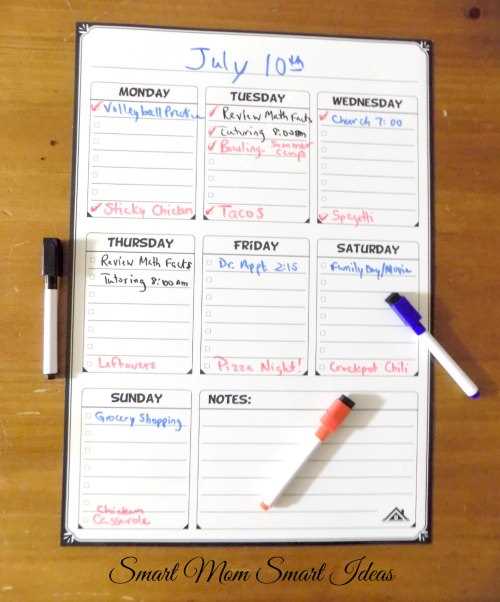 July 10th
MONDAY
Volleyball Practice
Sticky Chicken
TUESDAY
Review Math Facts
Tutoring 8:00am
Bowling- Summer
Camp
Tacos
WEDNESDAY
Church 7:00
Spagetti
THURSDAY
Review Math Facts
Tutoring 8:00am
Leftovers
FRIDAY
Dr. Appt 2:15
Pizza Night!
SATURDAY
Family Day/Movie
Crockpot Chili
SUNDAY
Grocery Shopping
Chicken
Casserole
NOTES:
Smart Mom Smart Ideas